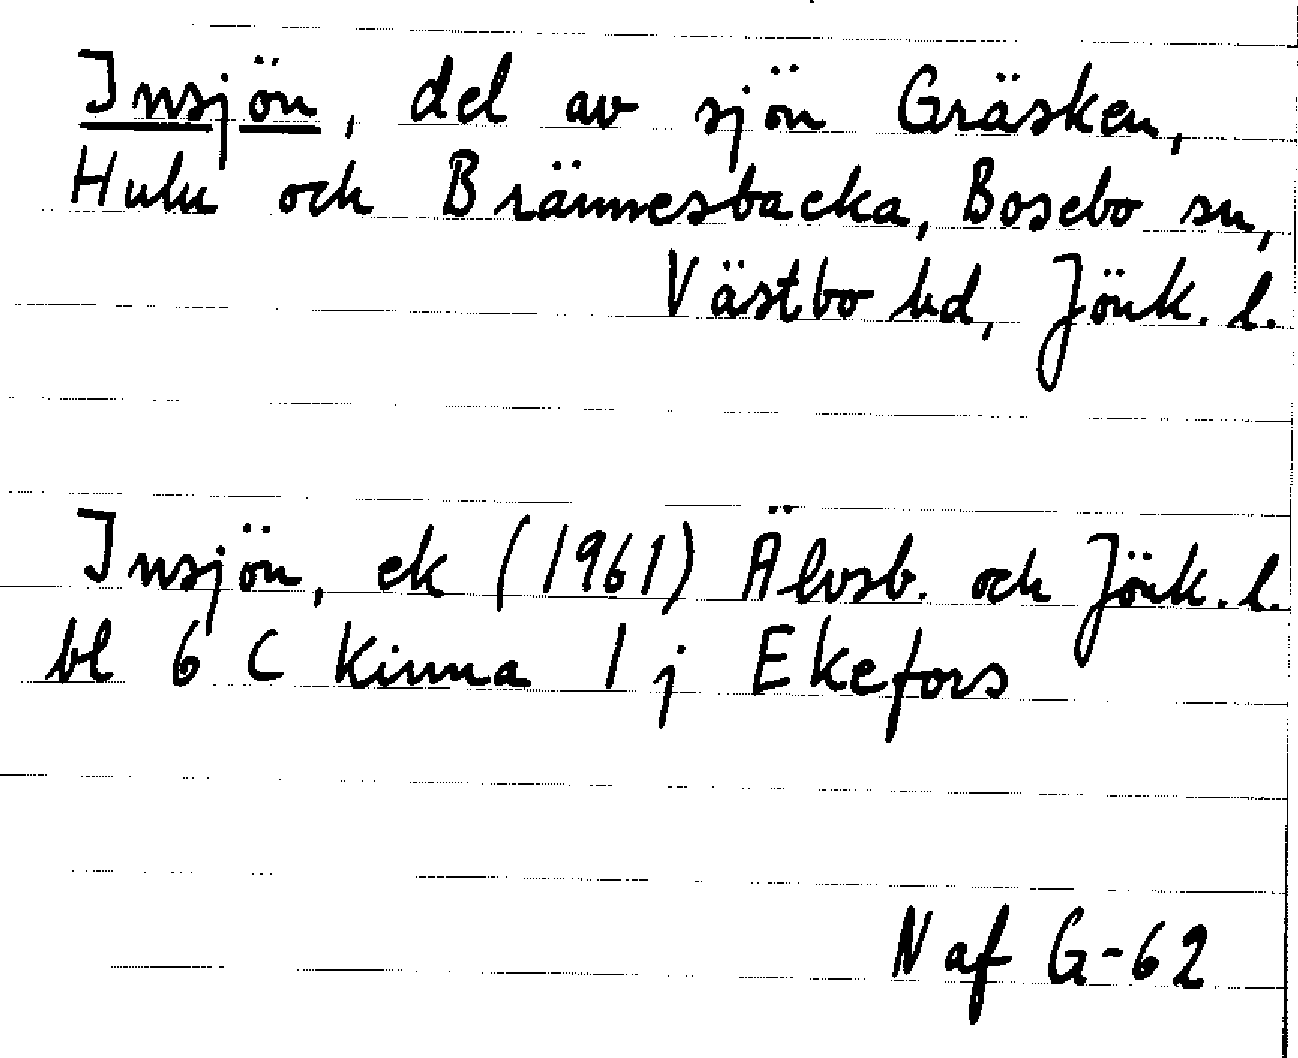 Insjön, del av sjön Gräsken,
Hulu och Brännesbacka, Bosebo sn,
Västbo hd, Jönk. l.
Insjön, ek (1961) Älvsb. och Jönk. l.
bl 6 C Kinna 1 j Ekefors
Naf G-62